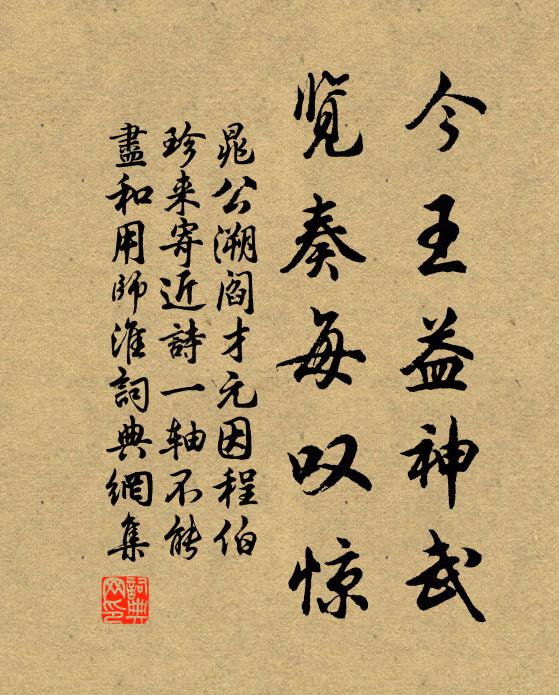 今王益神武
览奏每叹惊
晁公溯阎才元因程伯
珍来寄近詩一轴不能
盡和用師淮詞典網集
詞典
网印